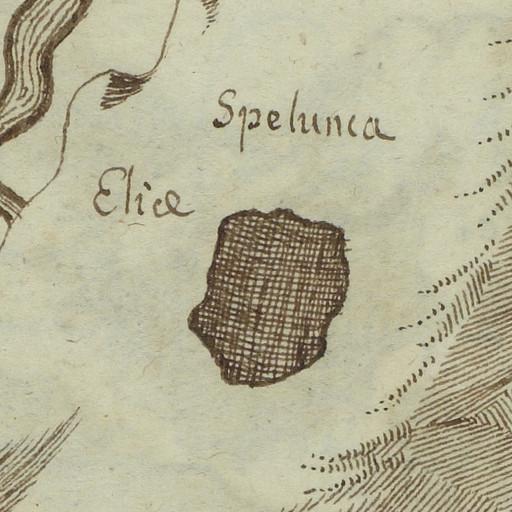 Spelunca
Eliæ